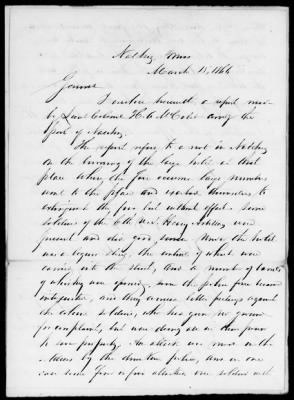 Natchez, Miss
March 15, 1866
General
I enclose herewith a report made
by Lieut Colonel
Post of Natchez
The report refers to a riot in Natchez
on the burning of the large hotel in that
place. When the fire occurred large numbers
went to the place and exerted themselves to
extinguish the fire but without effect. Some
soldiers of the 6th U.S. Heavy Artillery were
present and did good service. Under the hotel
was a liquor store, the entire of which were
carried into the street, and a number of barrels
of whiskey were opened, soon the police force became
intoxicated, and they evinced bitter feelings against
the colored soldiers, who has given no ground
for complaint, but were doing all in their power
to save property. An attack was made on the
soldiers by the drunken police, and in one
case seven five or six attacked one soldier with